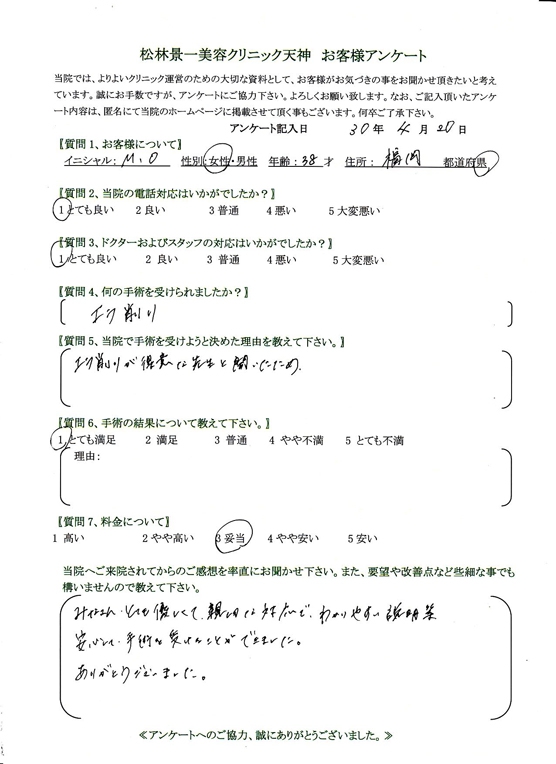 松林景一美容クリニック天神 お客様アンケート
当院では、よりよいクリニック運営のための大切な資料として、お客様がお気づきの事をお聞かせ頂きたいと考え
ています。誠にお手数ですが、アンケートにご協力下さい。よろしくお願い致します。なお、ご記入頂いたアンケ
ート内容は、匿名にて当院のホームページに掲載させて頂く事もございます。何卒ご了承下さい。
アンケート記入日 30年 4月 20日
〖質問1、お客様について〗
イニシャル: M.O 性別:女性・男性 年齢:38才 住所: 福岡 都道府県
〖質問2、当院の電話対応はいかがでしたか?〗
1とても良い 2 良い 3 普通 4 悪い 5 大変悪い
〖質問3、ドクターおよびスタッフの対応はいかがでしたか?〗
1とても良い 2 良い 3 普通 4 悪い 5 大変悪い
〖質問4、何の手術を受けられましたか?〗
エラ削り
〖質問5、当院で手術を受けようと決めた理由を教えて下さい。〗
エラ削りが得意な先生と聞いたため。
〖質問6、手術の結果について教えて下さい。〗
1とても満足 2 満足 3 普通 4 やや不満 5 とても不満
理由:
〖質問7、料金について〗
1 高い 2 やや高い 3 妥当 4 やや安い 5 安い
当院へご来院されてからのご感想を率直にお聞かせ下さい。また、要望や改善点など些細な事でも
構いませんので教えて下さい。
みなさん、とても優しくて、親切な対応で、わかりやすい説明
安心して、手術を受けることができました。
ありがとうございました。
≪アンケートへのご協力、誠にありがとうございました。≫